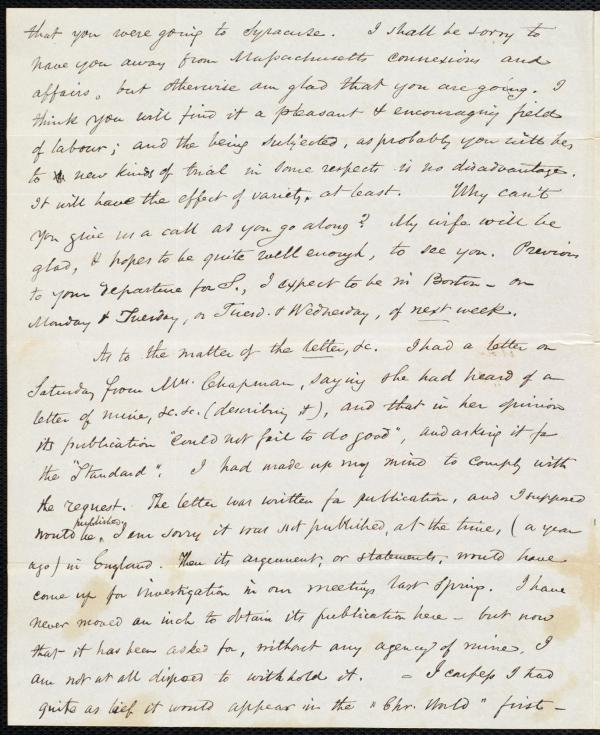 that you were going to Syracuse. I shall be sorry to
have you away from Massachusetts connexions and
affairs, but otherwise am glad that you are going. I
think you will find it a pleasant & encouraging field
of labour; and the being subjected, as probably you will be,
to new kinds of trial in some respects is no disadvantage.
It will have the effect of variety, at least. Why can't
you give us a call as you go along? My wife will be
glad, & hopes to be quite well enough, to see you. Previous
to your departure for S., I expect to be in Boston – on
Monday & Tuesday, or Tuesd. & Wednesday, of next week.
As to the matter of the letter, &c. I had a letter on
Saturday from Mrs. Chapman, saying she had heard of a
letter of mine, &c. &c. (describing it), and that in her opinion
its publication "could not fail to do good", and asking it for
the "Standard". I had made up my mind to comply with
the request. The letter was written for publication, and I supposed
published
would be. I am sorry it was not published, at the time, (a year
ago) in England. Then its argument, or statements, would have
come up for investigation in our meetings last Spring. I have
never moved an inch to obtain its publication here – but now
that it has been asked for, without any agency of mine, I
am not at all disposed to withhold it. – I confess I had
quite as lief it would appear in the "Chr. World" first –